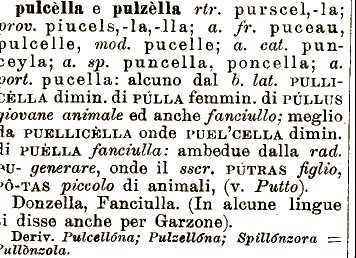 pulcèlla e pulzèlla rtr. purscel,-la;
prov. piucels,-la,-lla; a. fr. puceau,
pulcelle, mod. pucelle; a. cat. pun-
ceyla; a. sp. puncella, poncella; a.
port. pucella: alcuno dal b. lat. PULLI-
CÈLLA dimin. di PÚLLA femmin. di PÚLLUS
giovane animale ed anche fanciullo; meglio
da PUELLICÈLLA onde PUEL'CELLA dimin.
di PUÈLLA fanciulla: ambedue dalla rad.
PU- generare, onde il sscr. PÚTRAS figlio,
PÔ-TAS piccolo di animali, (v. Putto).
Donzella, Fanciulla. (In alcune lingue
si disse anche per Garzone).
Deriv. Pulcellóna; Pulzellóna; Spillónzora =
Pullònzola.